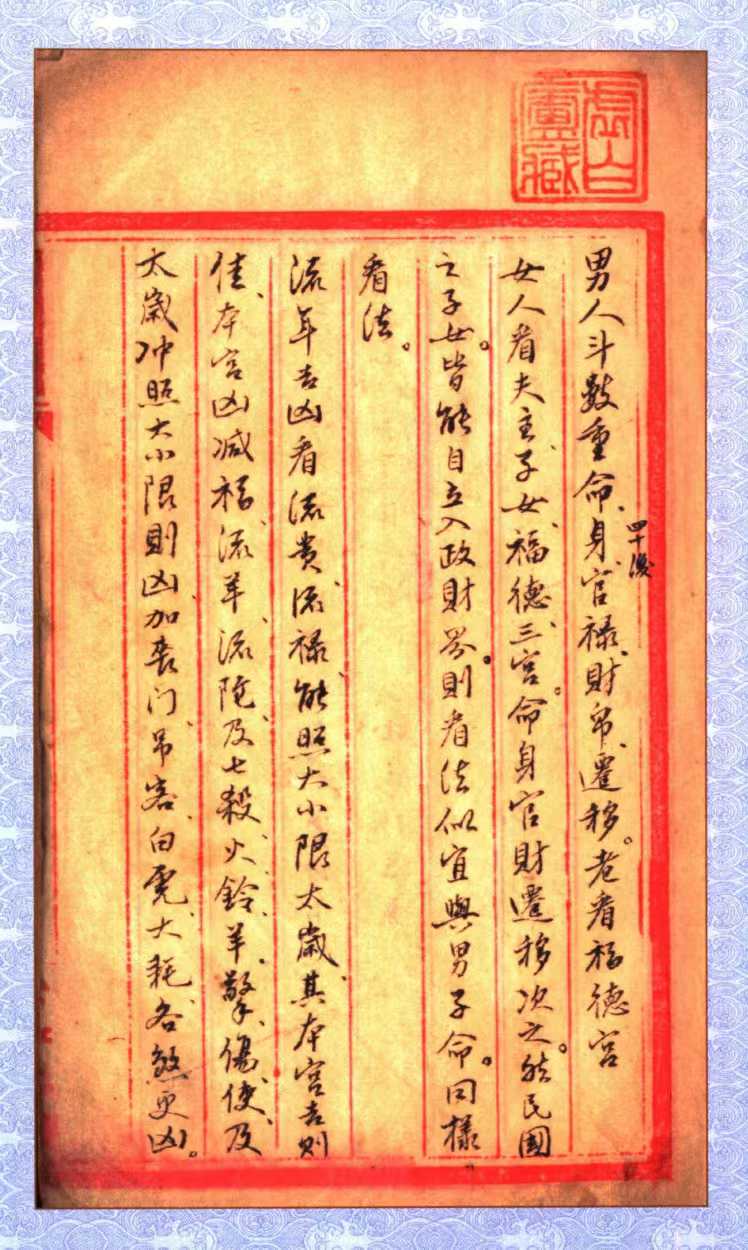 虛白廬藏
男人斗數重命、身、官祿、財帛、遷移。老看福德宮
四十後
女人看夫主、子女、福德、三宮。命身官財遷移次之。然民國
之子女。皆能自立入政財界。則看法似宜與男子命。同樣
看法。
流年吉凶看流貴、流祿、能照大小限太歲、其本宮吉則
佳、本宮凶减福、流羊、流陀、及七殺、火、鈴、羊、擎、傷、使、及
太歲冲照大小限則凶加喪门、吊客、白虎、大耗、各煞更凶。